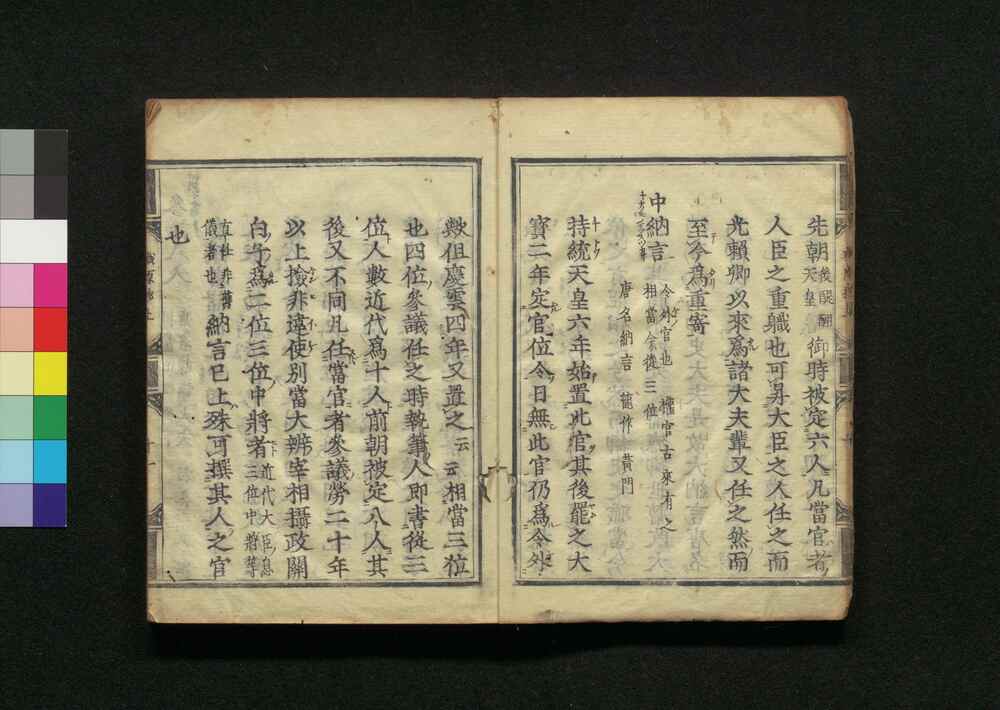 先朝後醍醐天皇御時被定六人凡當官者
人臣之重職也可昇大臣之人任之而
光頼卿以來爲諸大夫輩又任之然而
至今爲重寄
中納言 令外官也 權官古來有之
相當全從三位
唐名納言 龍作 黄門
持統天皇六年始置此官其後罷之大
寳二年定官位令日無此官仍爲令外
歟但慶雲四年又置之云云相當三位
也四位參議任之時執筆人即書從三
位人數近代爲十人前朝被定八人其
後又不同凡任當官者參議勞二十年
以上撿非違使別當大辨宰相攝政關
白子爲二位三位中將者近代大臣息三位中將等
直任非舊儀者也納言已上殊可撰其人之官
也